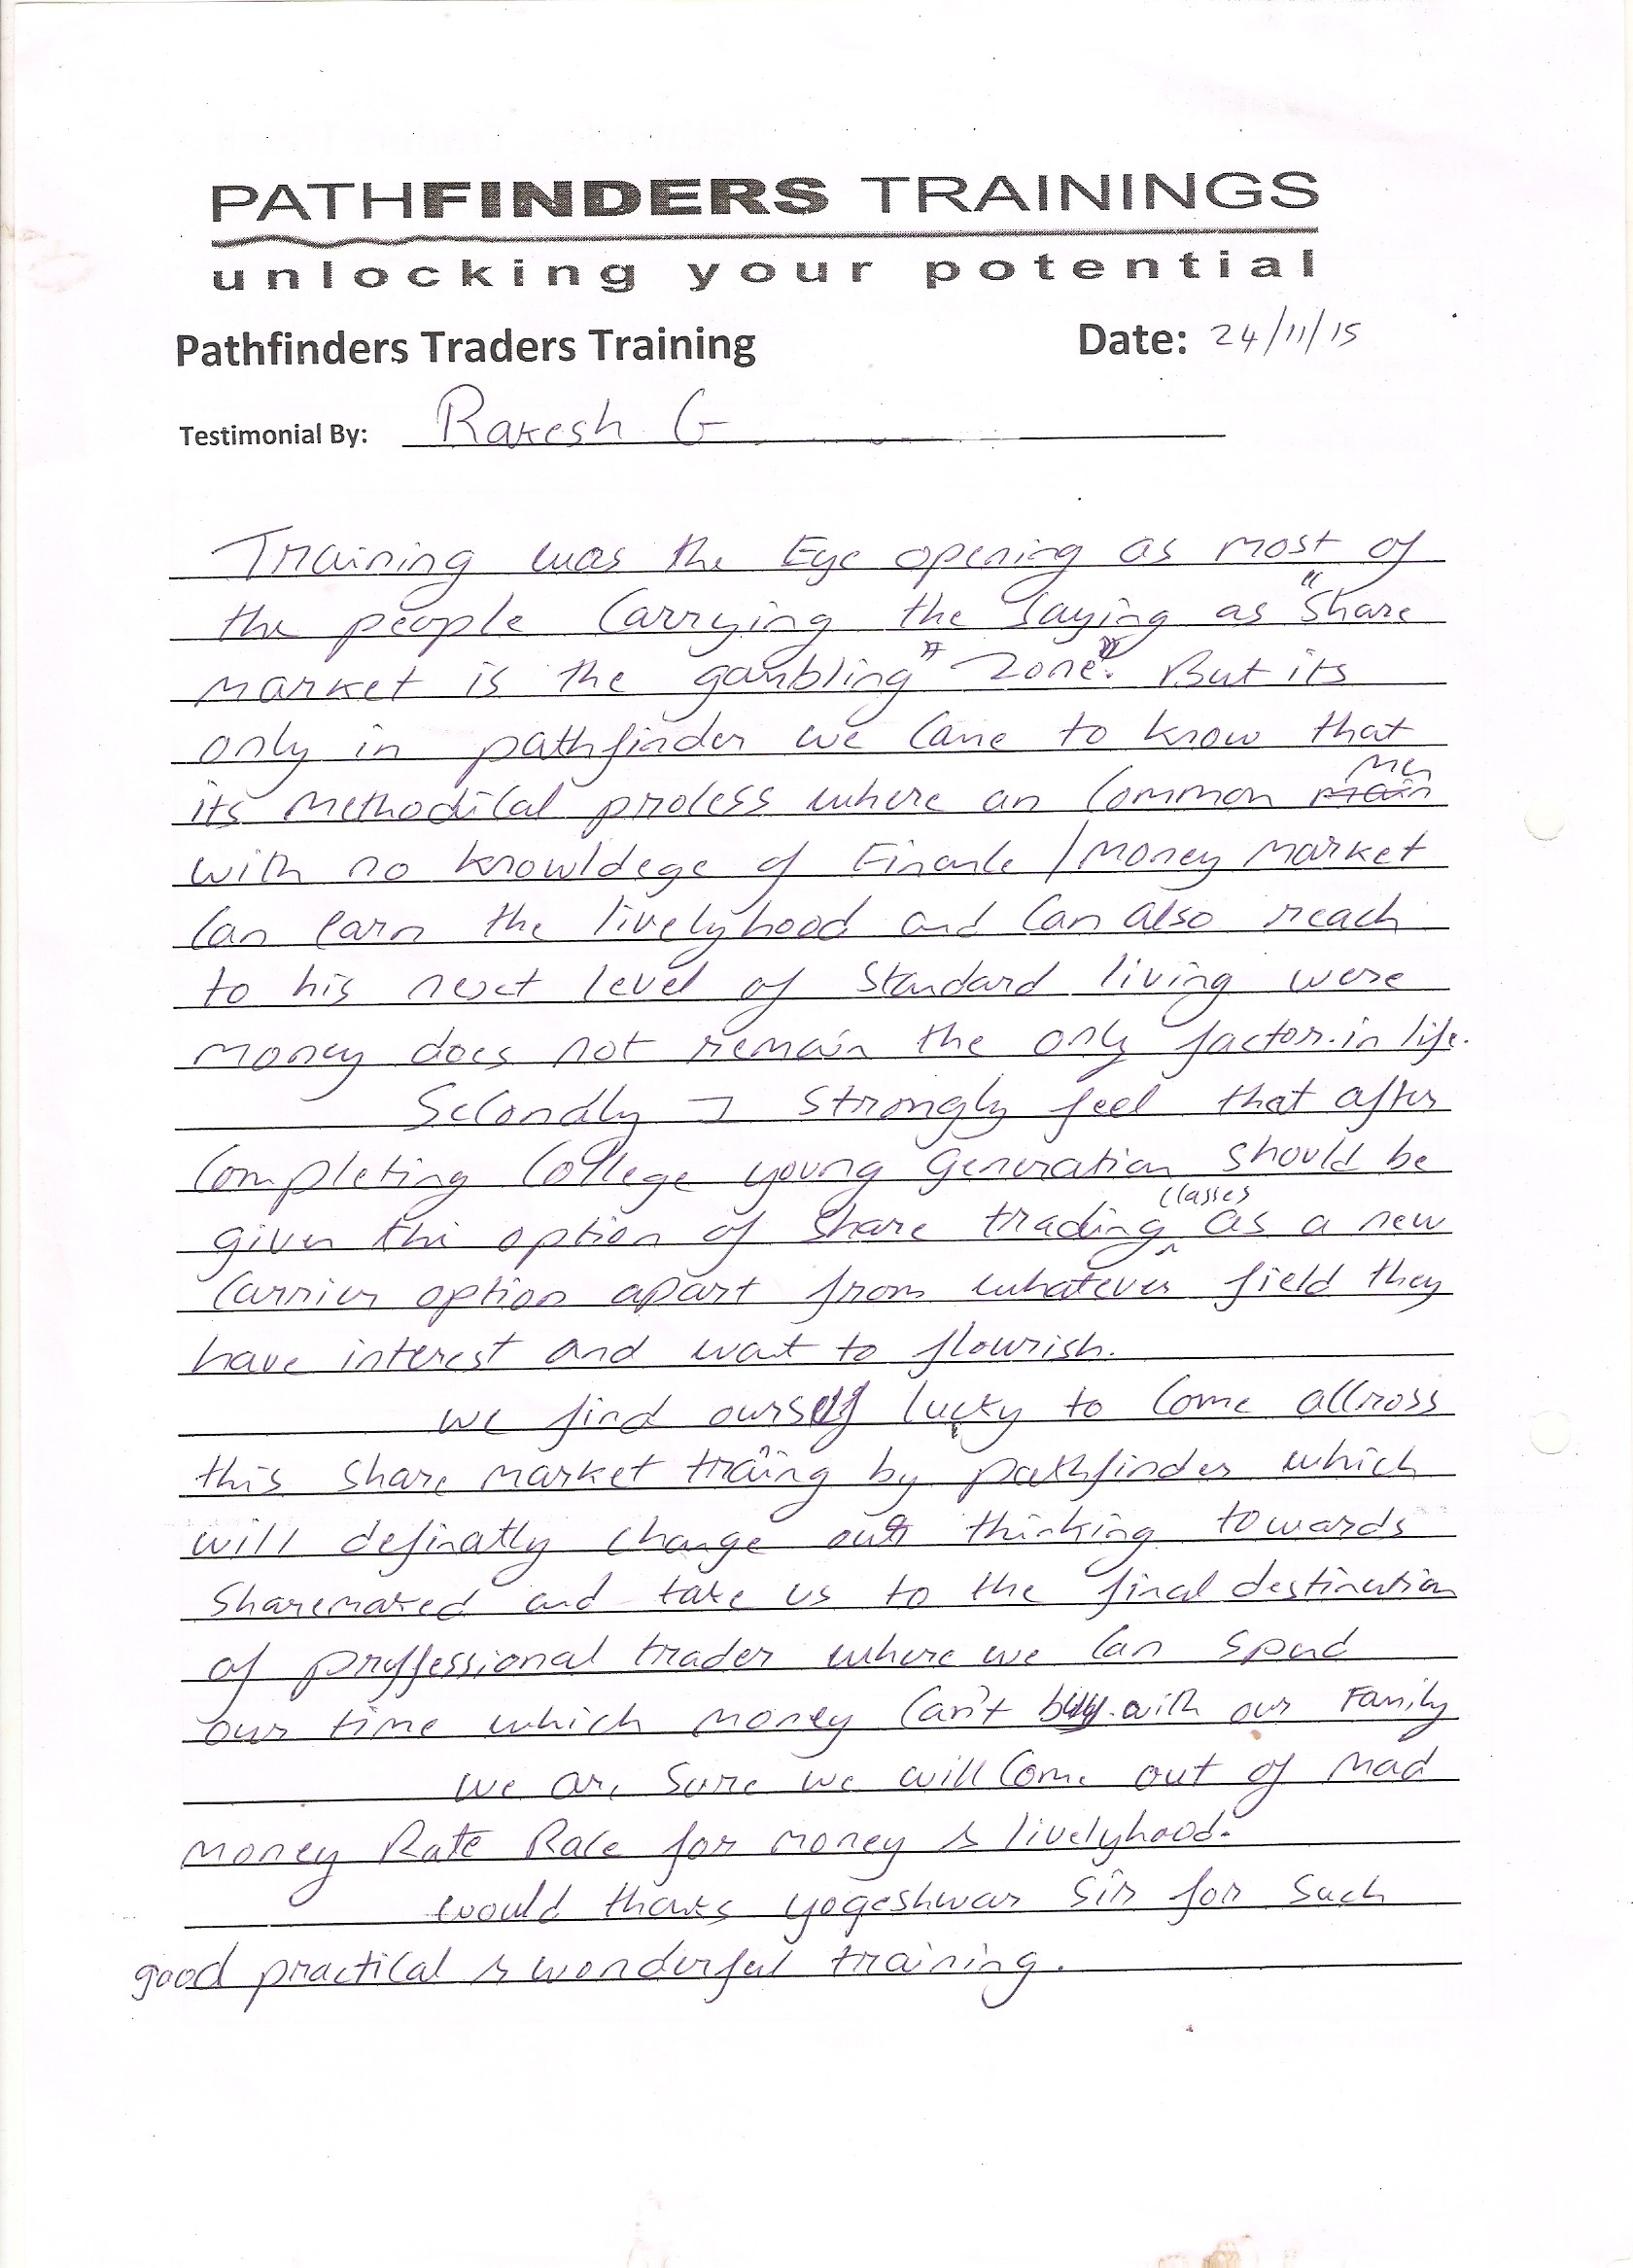 PATHFINDERS TRAININGS
unlocking your potential
Pathfinders Traders Training Date: 24/11/15
Testimonial By: Rakesh G
Training was the Eye opening as most of
the people Carrying the saying as "Share
market is the gambling" Zone". But its
only in pathfinder we Came to know that
its Methodical process where an Common men
with no knowldege of Finance / Money Market
Can earn the livelyhood and Can also reach
to his next level of Standard living were
money does not remain the only factor. in life.
Secondly I strongly feel that after
Completing College young Generation should be
given the option of Share trading classes as a new
Carrier option apart from whatever field they
have interest and want to flourish.
we find ourself lucky to Come accross
this Share market traing by pathfinder which
will definatly change our thinking towards
Sharemaked and take us to the final destination
of proffessional trader where we Can spend
our time which money Can't buy. with our Family
we are Sure we will Come out of Mad
Money Rate Race for money & livelyhood.
would thanks yogeshwar Sir for Such
good practical & wonderful training.